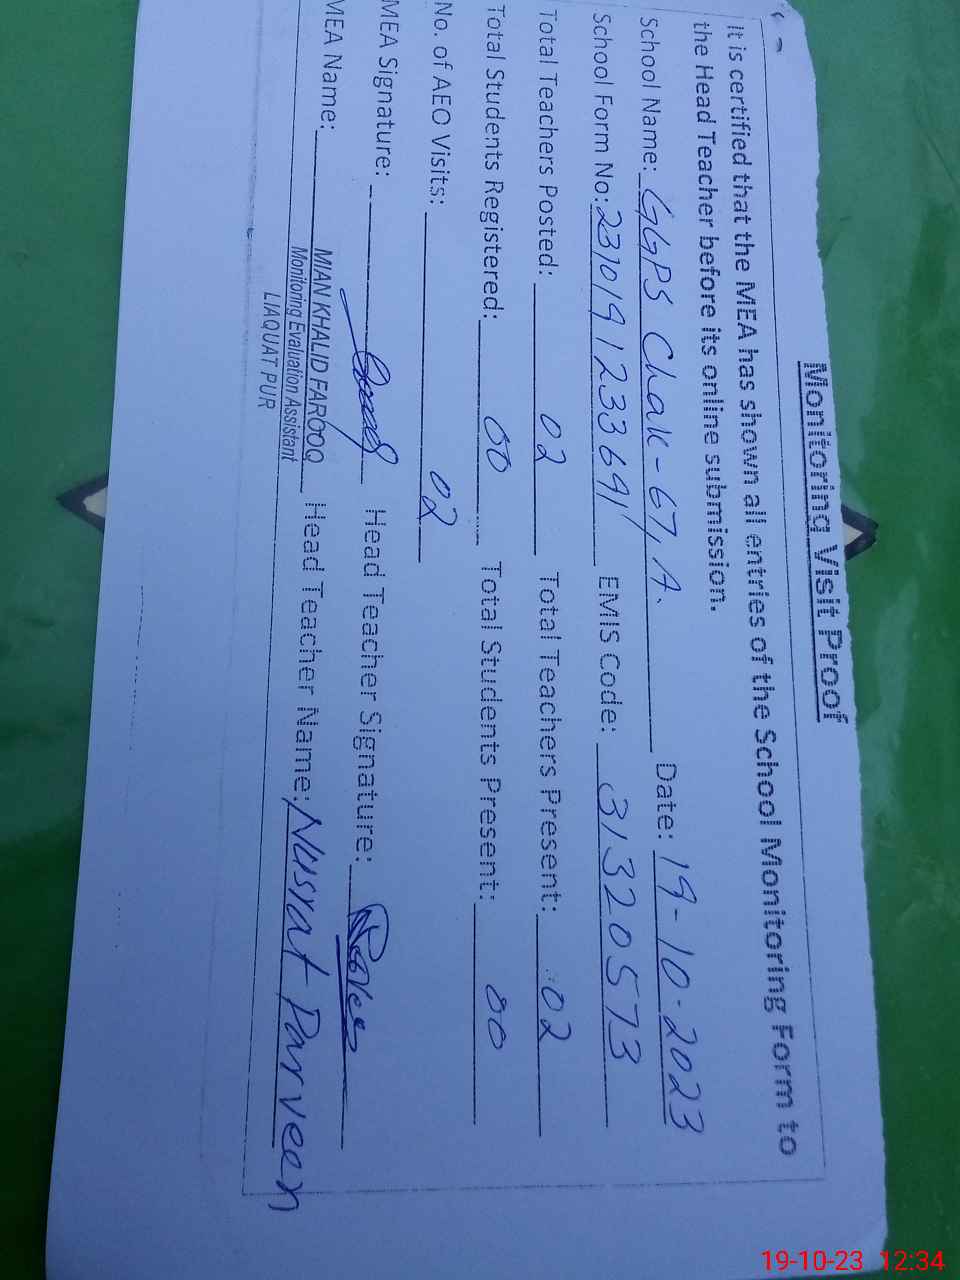 Monitoring Visit Proof
It is certified that the MEA has shown all entries of the School Monitoring Form to
the Head Teacher before its online submission.
School Name: GGPS Chak-67, A. Date: 19-10-2023
School Form No: 2310191233691 EMIS Code: 31320573
Total Teachers Posted: 02 Total Teachers Present: 02
Total Students Registered: 00 Total Students Present: 00
No. of AEO Visits: 02
MEA Signature: Head Teacher Signature:
MEA Name: MIAN KHALID FAROOQ Head Teacher Name: Nusrat Parveen
Monitoring Evaluation Assistant
LIAQUAT PUR
19-10-23 12:34